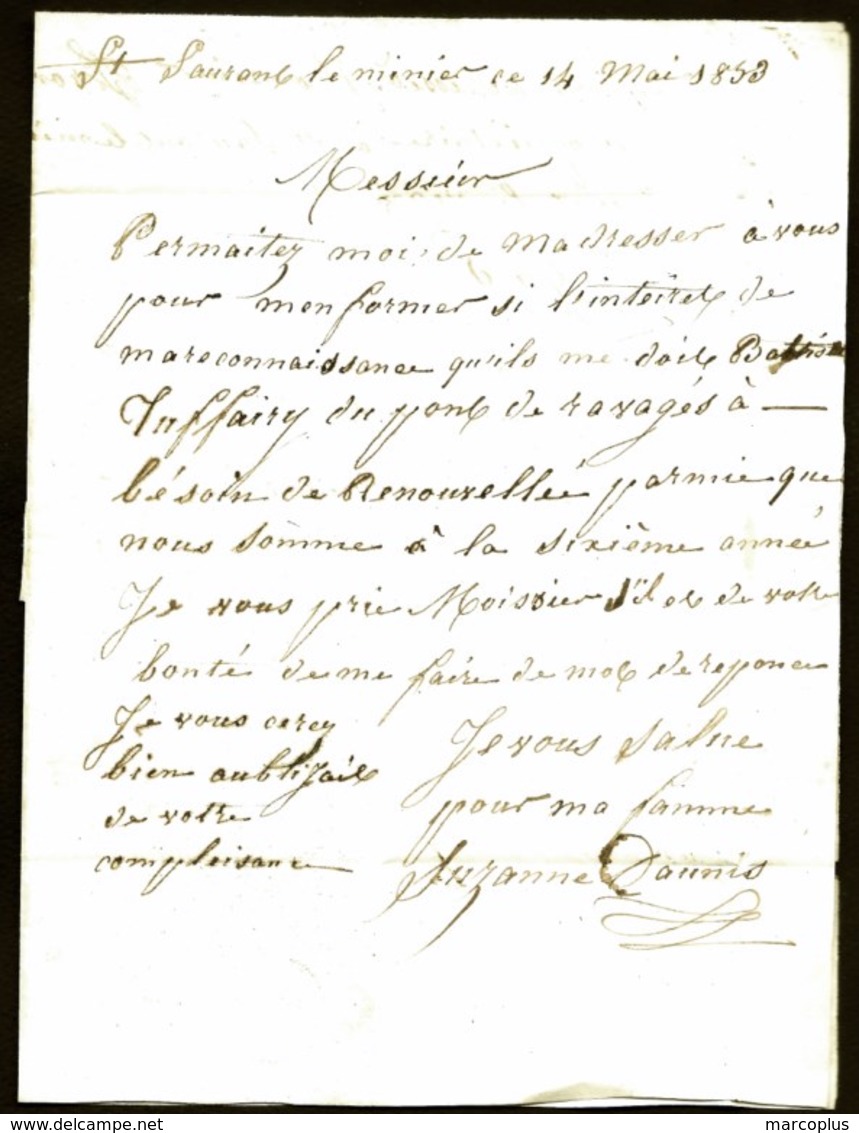 St Laurant le minier ce 14 Mai 1853
Messiur
Permaitez moi de madresser à vous
pour menformer si lintoiret de
mareconnaissance qu'ils me doit Batiste
Tuffairy du pont de ravagés à —
bésoin de Renouvelleé parmie que
nous somme à la sixiême anneé
Je vous prie Moissieur s'il et de votre
bonté de me faire de mot de reponce
Je vous cerey
bien aubligait
de votre
compleisance
Je vous salue
pour ma famme
Suzanne Daunis
delcampe.net
marcoplus